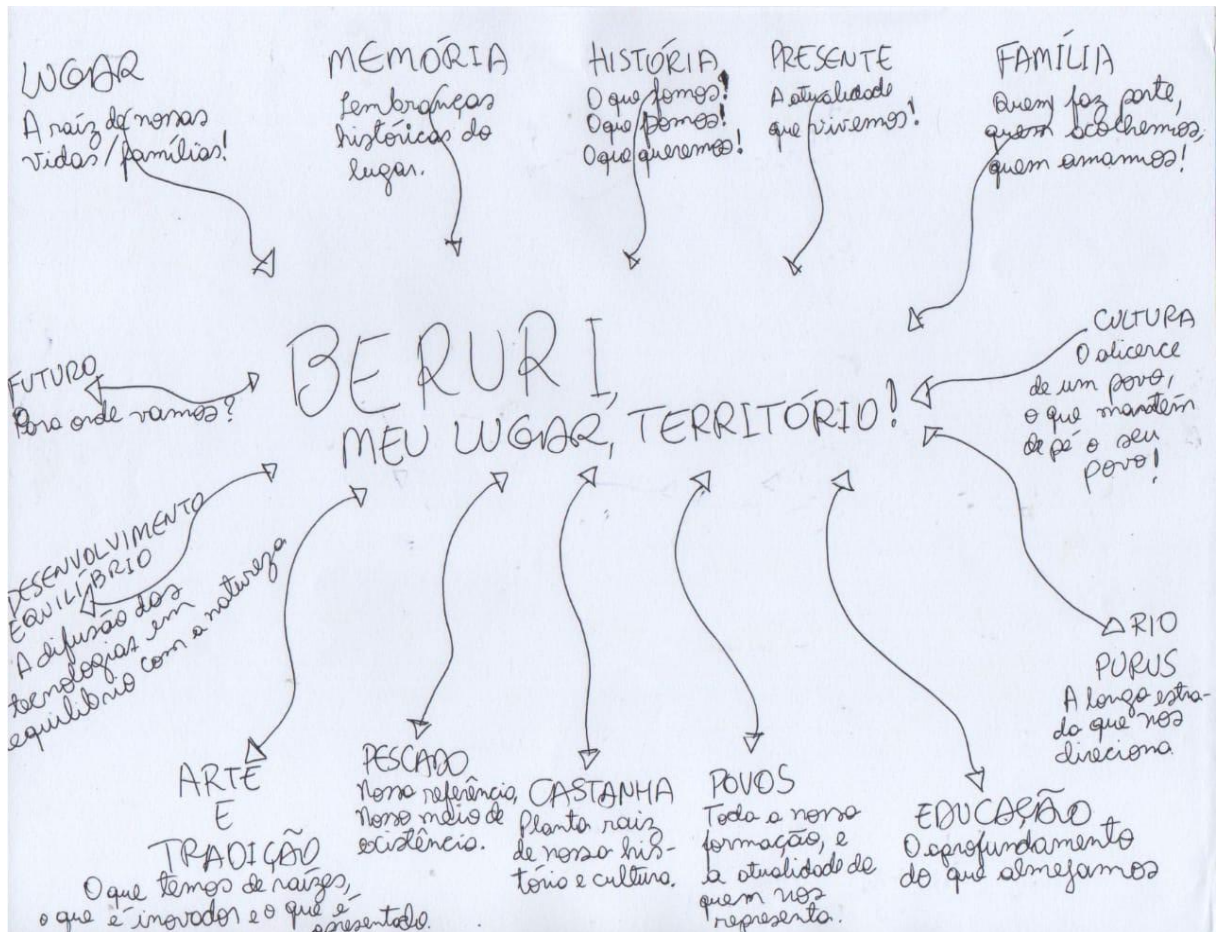 LUGAR
A raíz de nossas
vidas/famílias!
MEMÓRIA
Lembranças
históricas do
lugar.
HISTÓRIA
O que fomos!
O que somos!
O que queremos!
PRESENTE
A atualidade
que vivemos!
FAMÍLIA
Quem faz parte,
quem acolhemos,
quem amamos!
BERURI,
MEU LUGAR, TERRITÓRIO!
FUTURO
Para onde vamos?
CULTURA
O alicerce
de um povo,
o que mantém
de pé o seu
povo!
DESENVOLVIMENTO
EQUILÍBRIO
A difusão das
tecnologias em
equilíbrio com a natureza
RIO
PURUS
A longa estra-
da que nos
direciona
ARTE
E
TRADIÇÃO
O que temos de raízes,
o que é inovador e o que é
apresentado.
PESCADO
Nossa referência,
Nosso meio de
existência.
CASTANHA
Planta raiz
de nossa his-
tória e cultura.
POVOS
Toda a nossa
formação, e
a atualidade de
quem nos
representa.
EDUCAÇÃO
O aprofundamento
do que almejamos